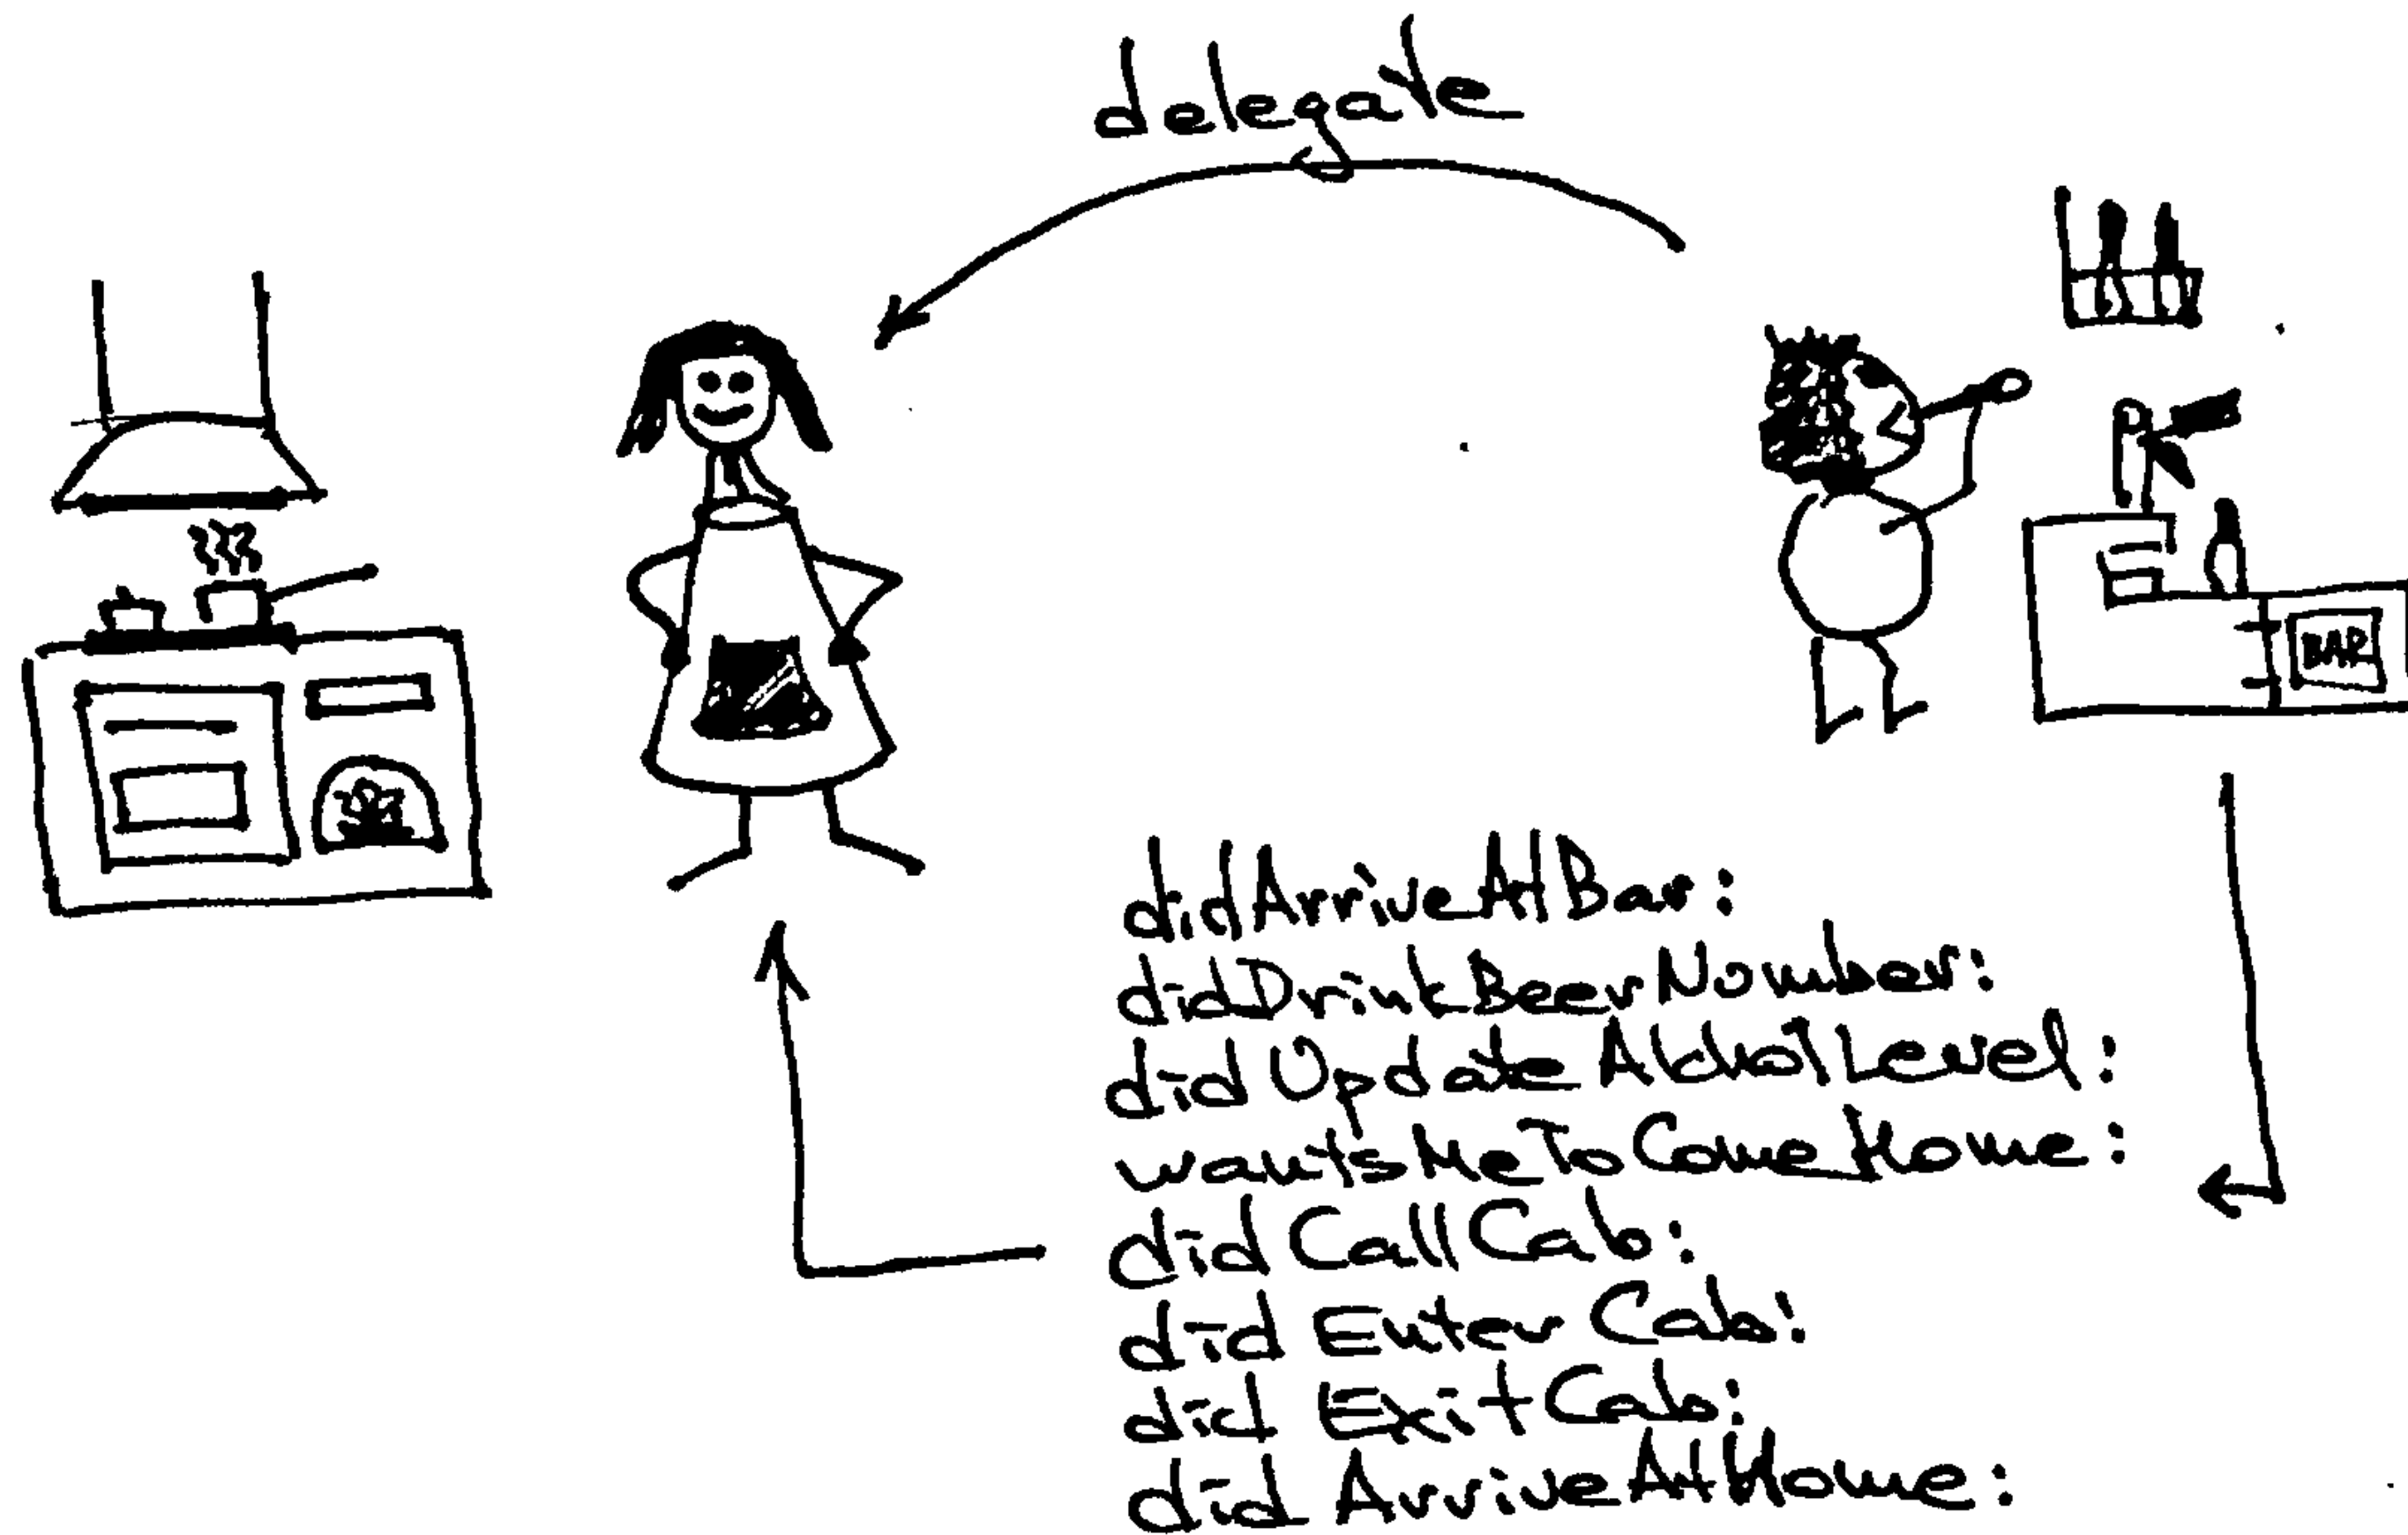 delegate
BAR
didArriveAtBar:
didDrinkBeerNumber:
didUpdateAlcholLevel:
wantsMeToComeHome:
didCallCab:
did Enter Cab:
did ExitCab:
did ArriveAtHome: